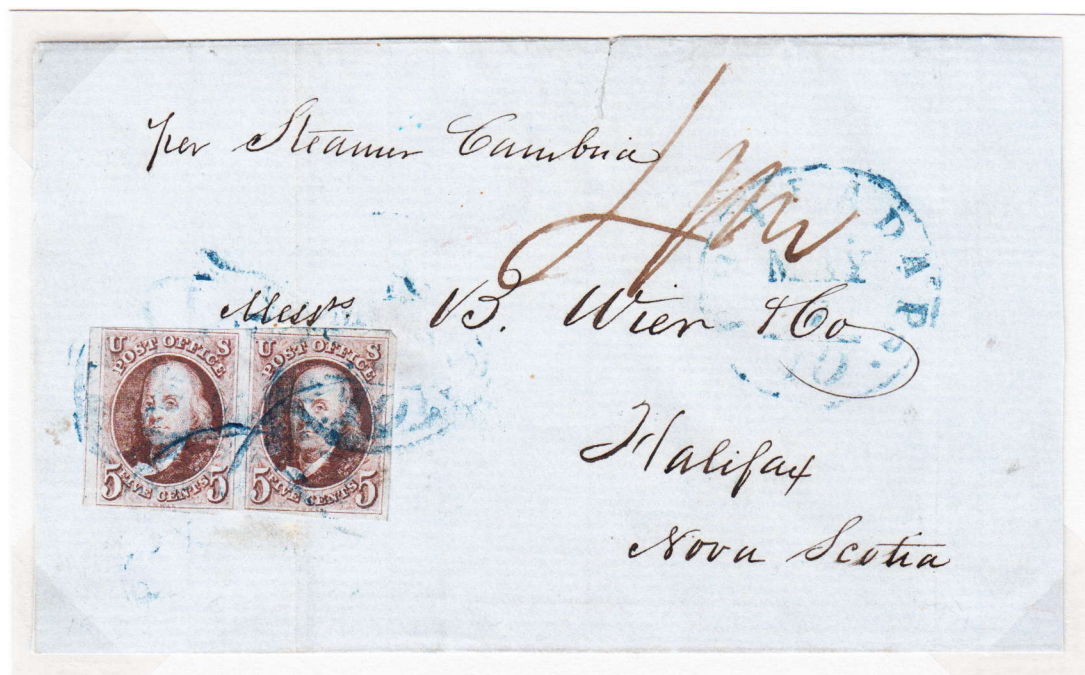 per Steamer Cambria
Messrs B. Wier & Co
Halifax
Nova Scotia
MAY
10
U S
POST OFFICE
5 FIVE CENTS 5
U S
POST OFFICE
5 FIVE CENTS 5